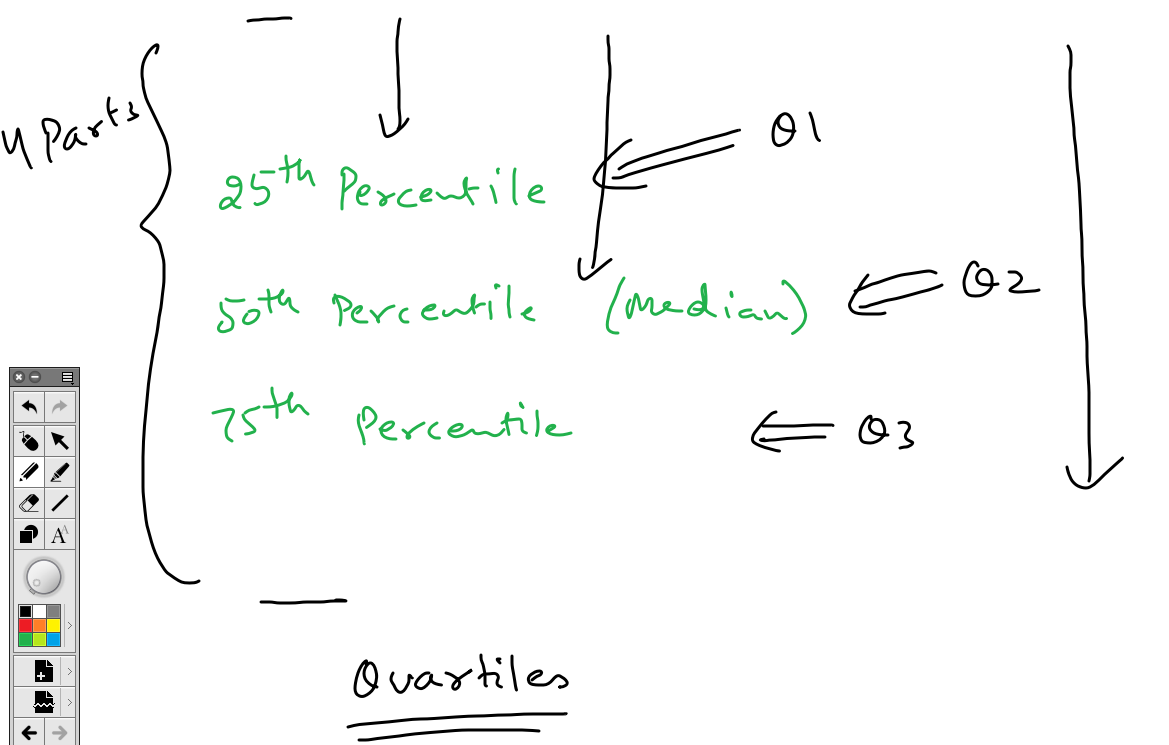 4 Parts
25th Percentile Q1
50th Percentile (Median) Q2
75th Percentile Q3
Quartiles